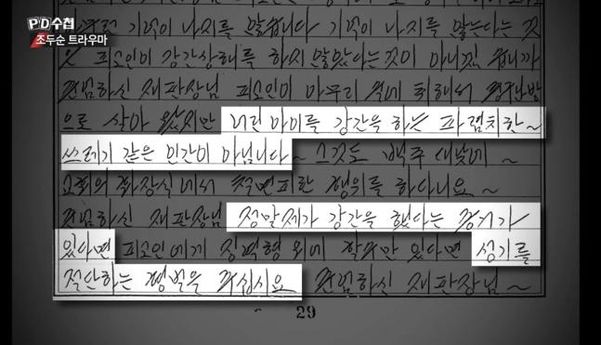 PD수첩
조두순 트라우마
기억이 나지를 않습니다 기억이 나지를 않는다는 것
은 피고인이 강간상해를 하지 않았다는 것이 아니겠습니까
존엄하신 재판장님 피고인이 아무리 술에 취해서
으로 살아 왔지만 어린아이를 강간을 하는 파렴치한~
쓰레기 같은 인간이 아닙니다~ 그것도 백주 대낮에~
교회의 화장실에서 철면피한 행위를 하다니요~
존엄하신 재판장님 정말제가 강간을 했다는 증거가
있다면 피고인에게 징역형 외에 할수만 있다면 성기를
절단하는 형벌을 주십시요 존엄하신 재판장님~
29